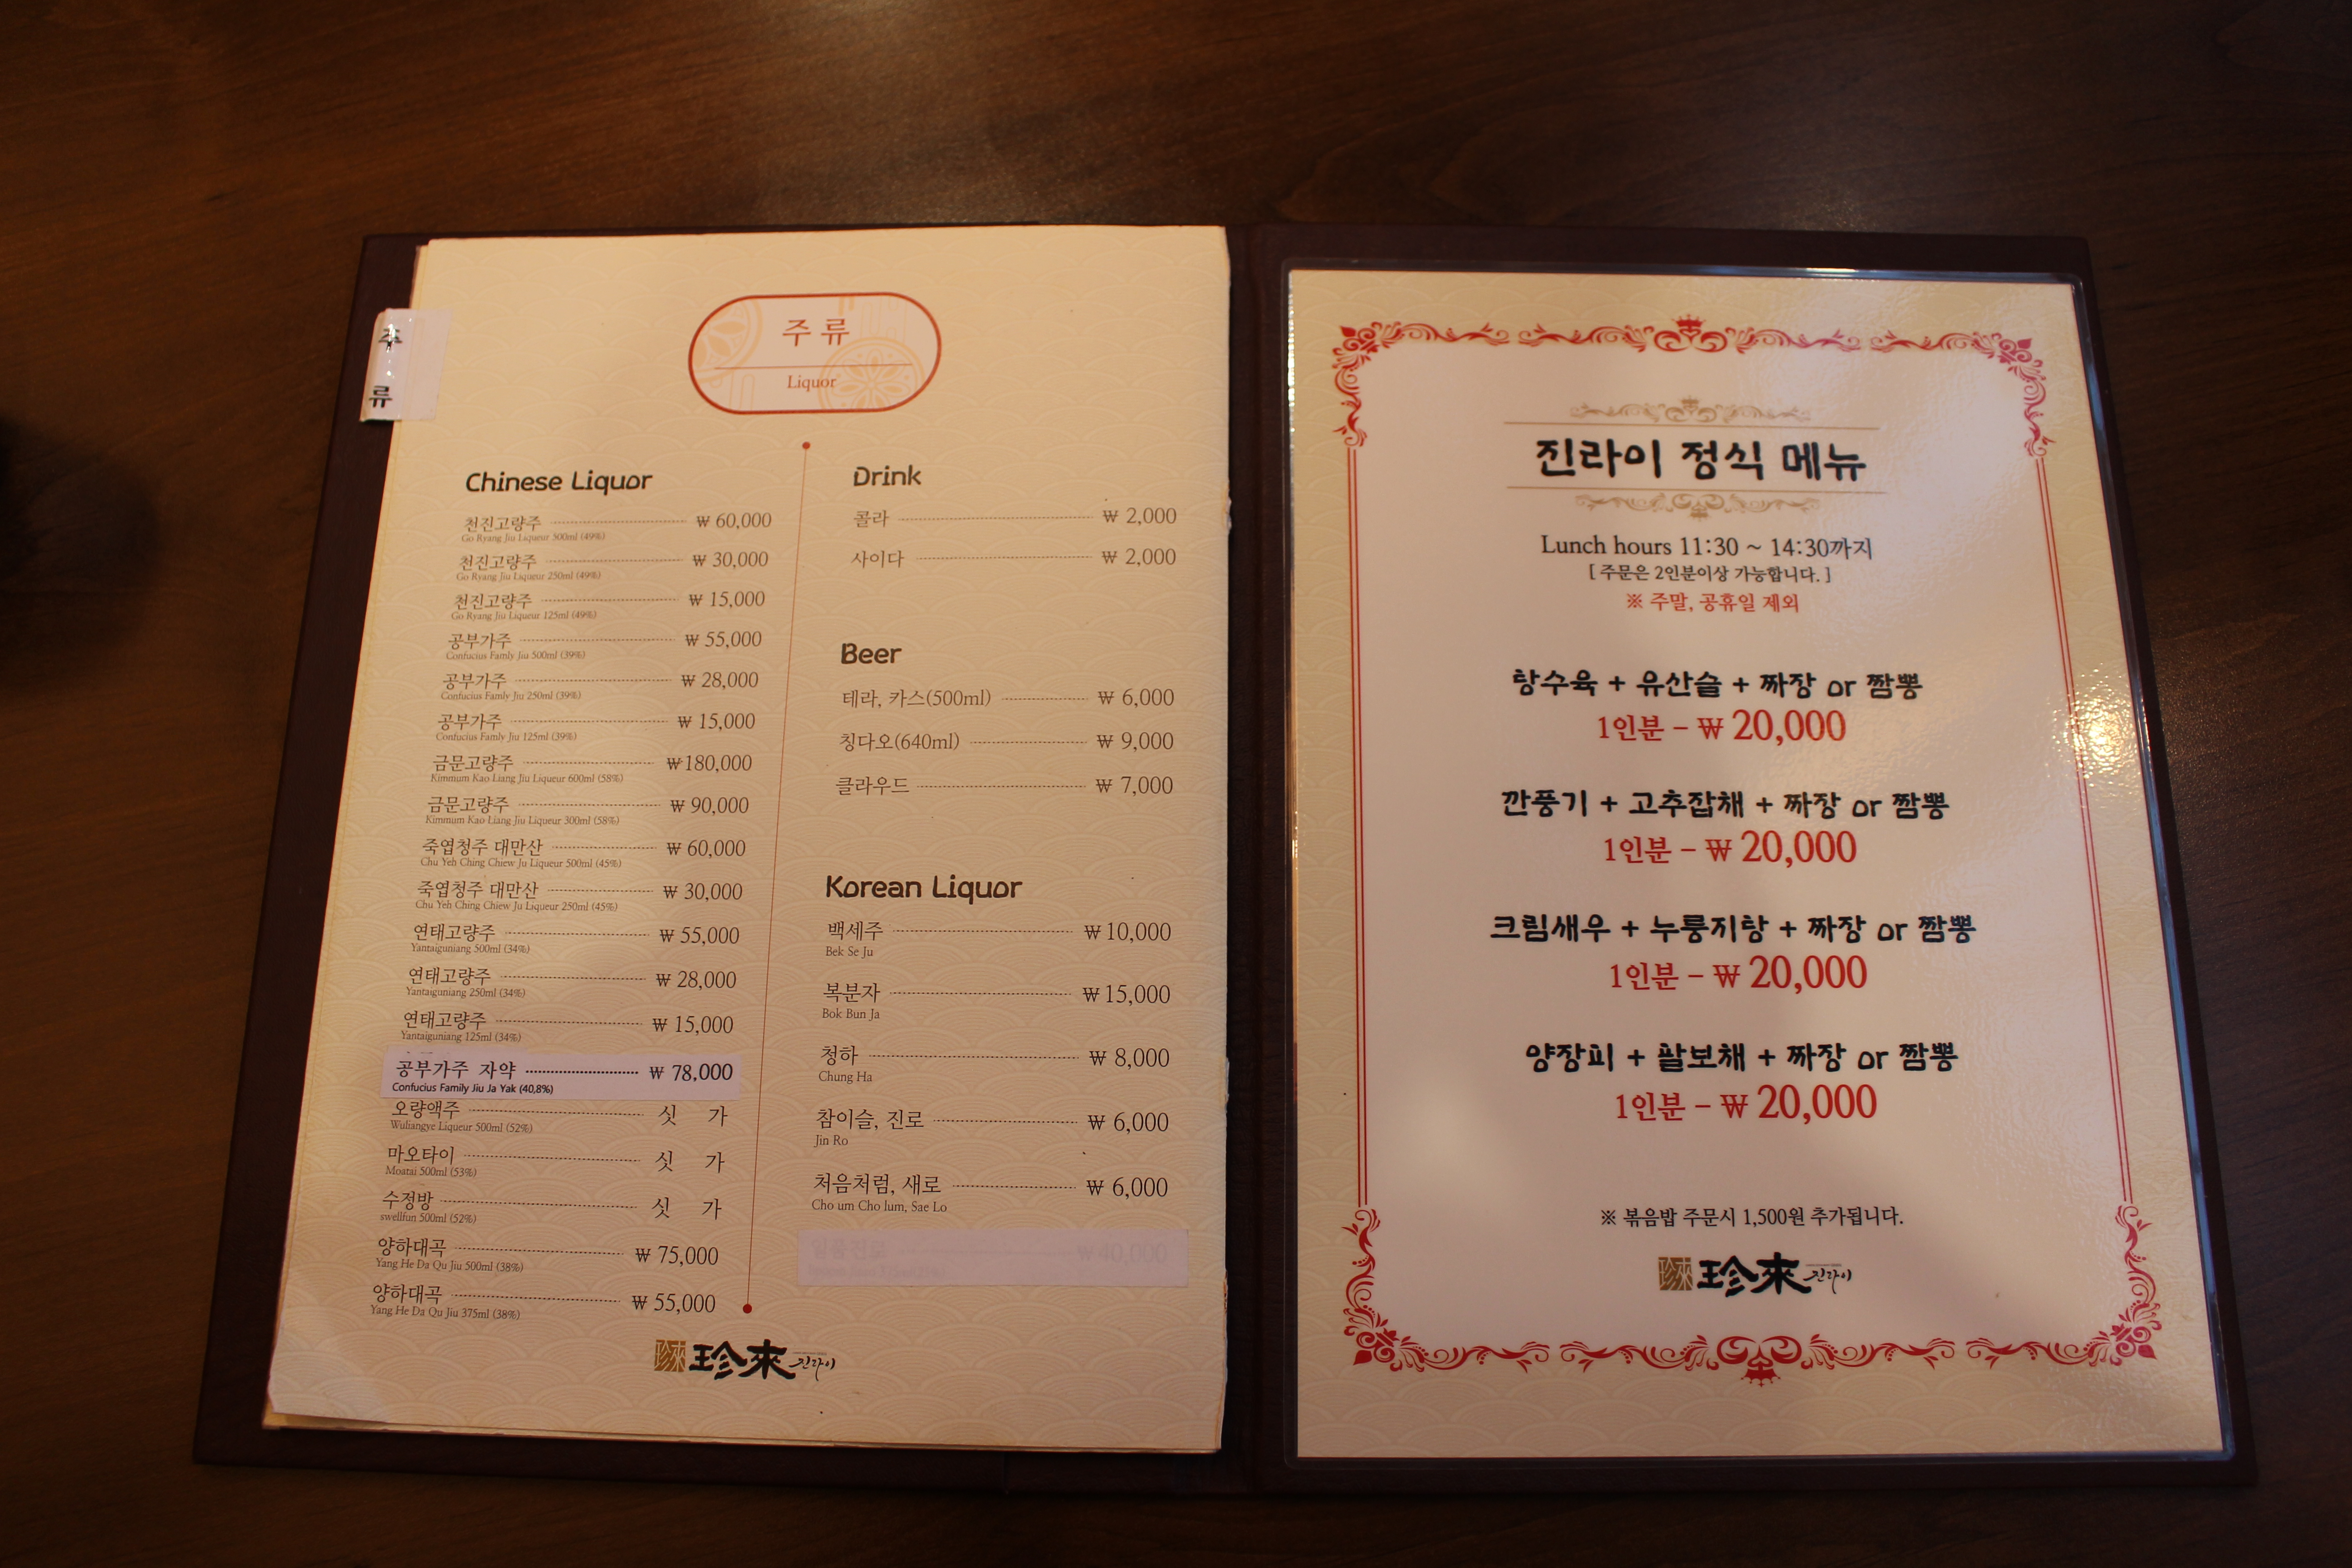 주
류
주류
Liquor
Chinese Liquor
천진고량주 ₩ 60,000
Go Ryang Jiu Liqueur 500ml (49%)
천진고량주 ₩ 30,000
Go Ryang Jiu Liqueur 250ml (49%)
천진고량주 ₩ 15,000
Go Ryang Jiu Liqueur 125ml (49%)
공부가주 ₩ 55,000
Confucius Famly Jiu 500ml (39%)
공부가주 ₩ 28,000
Confucius Famly Jiu 250ml (39%)
공부가주 ₩ 15,000
Confucius Famly Jiu 125ml (39%)
금문고량주 ₩180,000
Kimmum Kao Liang Jiu Liqueur 600ml (58%)
금문고량주 ₩ 90,000
Kimmum Kao Liang Jiu Liqueur 300ml (58%)
죽엽청주 대만산 ₩ 60,000
Chu Yeh Ching Chiew Ju Liqueur 500ml (45%)
죽엽청주 대만산 ₩ 30,000
Chu Yeh Ching Chiew Ju Liqueur 250ml (45%)
연태고량주 ₩ 55,000
Yantaiguniang 500ml (34%)
연태고량주 ₩ 28,000
Yantaiguniang 250ml (34%)
연태고량주 ₩ 15,000
Yantaiguniang 125ml (34%)
공부가주 자약 ₩ 78,000
Confucius Family Jiu Ja Yak (40,8%)
오량액주 싯 가
Wuliangye Liqueur 500ml (52%)
마오타이 싯 가
Moatai 500ml (53%)
수정방 싯 가
swellfun 500ml (52%)
양하대곡 ₩ 75,000
Yang He Da Qu Jiu 500ml (38%)
양하대곡 ₩ 55,000
Yang He Da Qu Jiu 375ml (38%)
Drink
콜라 ₩ 2,000
사이다 ₩ 2,000
Beer
테라, 카스(500ml) ₩ 6,000
칭다오(640ml) ₩ 9,000
클라우드 ₩ 7,000
Korean Liquor
백세주 ₩ 10,000
Bek Se Ju
복분자 ₩ 15,000
Bok Bun Ja
청하 ₩ 8,000
Chung Ha
참이슬, 진로 ₩ 6,000
Jin Ro
처음처럼, 새로 ₩ 6,000
Cho um Cho lum, Sae Lo
₩ 40,000
珍來 珍來 진라이
진라이 정식 메뉴
Lunch hours 11:30 ~ 14:30까지
[ 주문은 2인분이상 가능합니다. ]
※ 주말, 공휴일 제외
탕수육 + 유산슬 + 짜장 or 짬뽕
1인분 - ₩ 20,000
깐풍기 + 고추잡채 + 짜장 or 짬뽕
1인분 - ₩ 20,000
크림새우 + 누룽지탕 + 짜장 or 짬뽕
1인분 - ₩ 20,000
양장피 + 팔보채 + 짜장 or 짬뽕
1인분 - ₩ 20,000
※ 볶음밥 주문시 1,500원 추가됩니다.
珍來 珍來 진라이